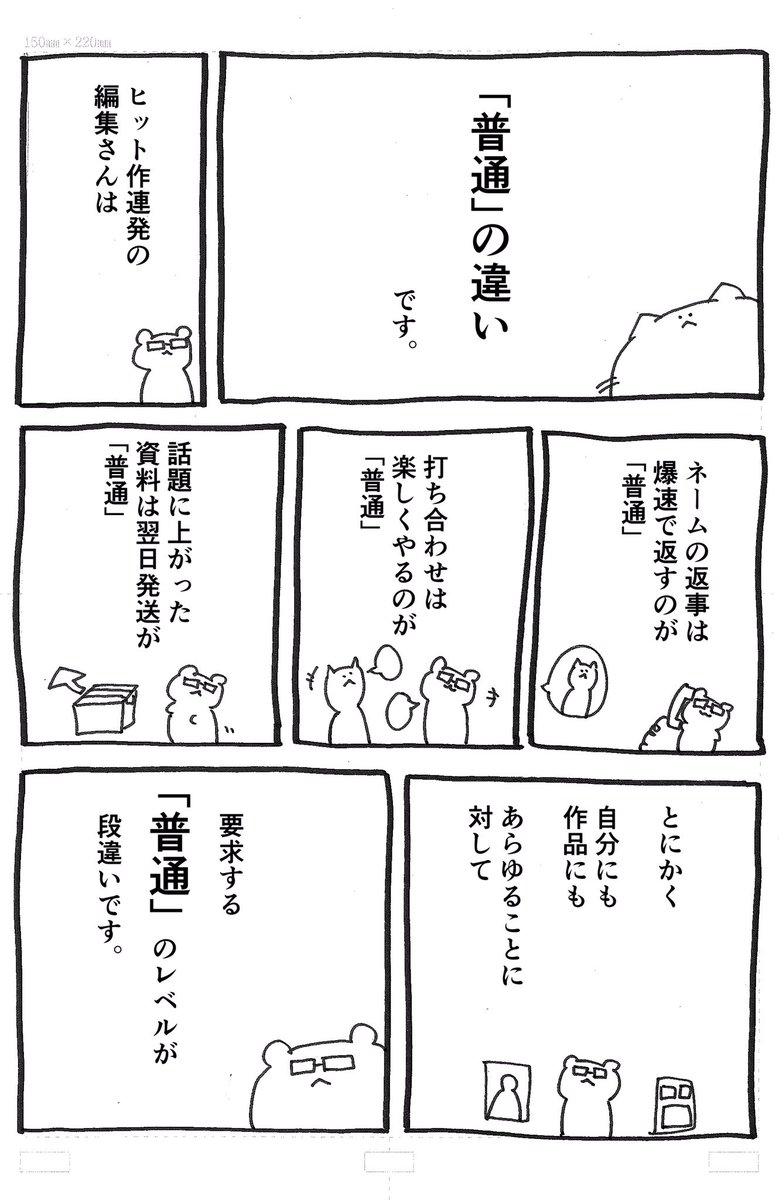 150mm×220mm
「普通」の違い
です。
ヒット作連発の
編集さんは
ネームの返事は
爆速で返すのが
「普通」
打ち合わせは
楽しくやるのが
「普通」
話題に上がった
資料は翌日発送が
「普通」
とにかく
自分にも
作品にも
あらゆることに
対して
要求する
「普通」のレベルが
段違いです。